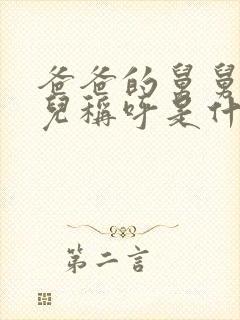 爸爸的舅舅
兒稱呼是什
第二言